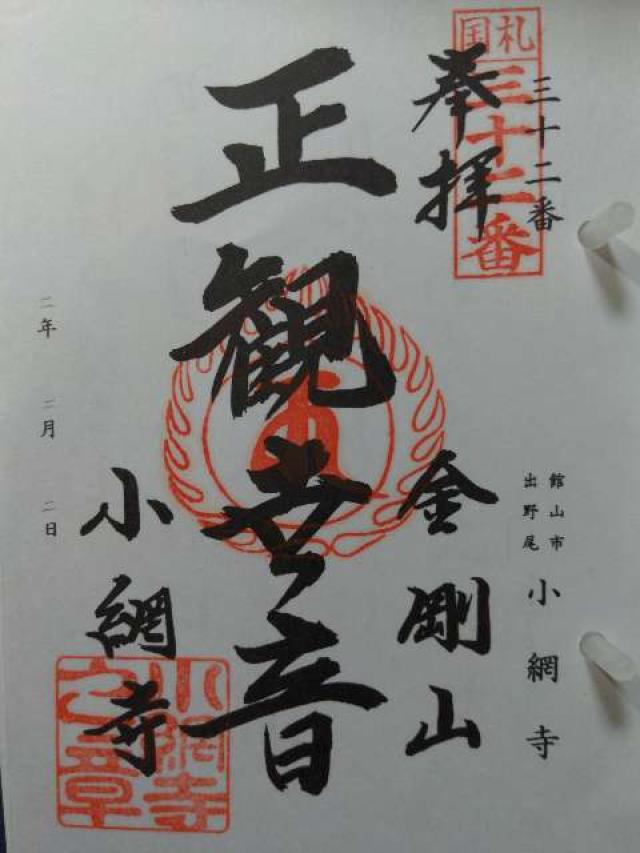 三十二番
国札
三十二番
奉拝
館山市
出野尾
小網寺
金剛山
正観世音
小網寺
小網寺之章
二年 二月 二日